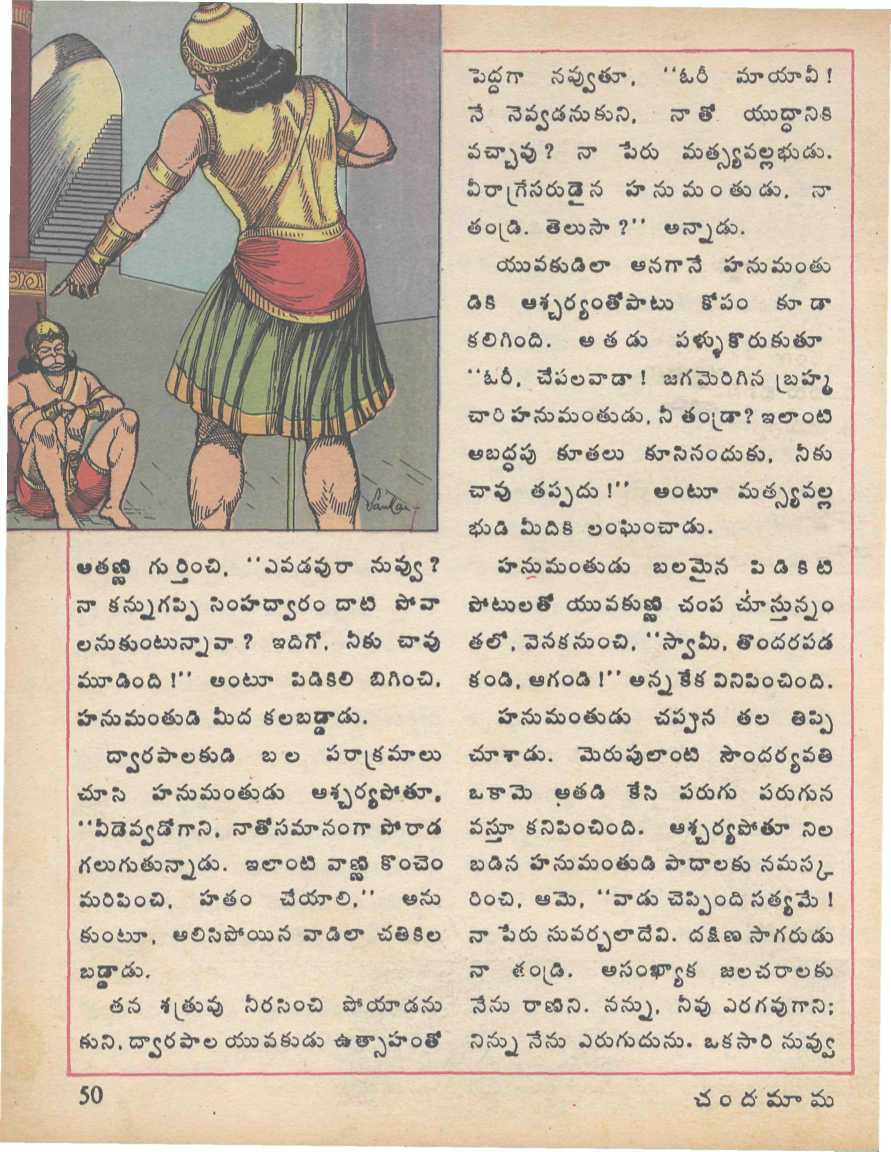 Sankar
అతణ్ణి గుర్తించి, ‘‘ఎవడవురా నువ్వు?
నా కన్నుగప్పి సింహద్వారం దాటి పోవా
లనుకుంటున్నావా? ఇదిగో, నీకు చావు
మూడింది!’’ అంటూ పిడికిలి బిగించి,
హనుమంతుడి మీద కలబడ్డాడు.
ద్వారపాలకుడి బల పరాక్రమాలు
చూసి హనుమంతుడు ఆశ్చర్యపోతూ,
‘‘వీడెవ్వడోగాని, నాతోసమానంగా పోరాడ
గలుగుతున్నాడు. ఇలాంటి వాణ్ణి కొంచెం
మరిపించి, హతం చేయాలి,’’ అను
కుంటూ, అలిసిపోయిన వాడిలా చతికిల
బడ్డాడు.
తన శత్రువు నీరసించి పోయాడను
కుని, ద్వారపాల యువకుడు ఉత్సాహంతో
పెద్దగా నవ్వుతూ, ‘‘ఓరీ మాయావీ!
నే నెవ్వడనుకుని, నాతో యుద్ధానికి
వచ్చావు? నా పేరు మత్స్యవల్లభుడు.
వీరాగ్రేసరుడైన హనుమంతుడు, నా
తండ్రి. తెలుసా?’’ అన్నాడు.
యువకుడిలా అనగానే హనుమంతు
డికి ఆశ్చర్యంతోపాటు కోపం కూడా
కలిగింది. అతడు పళ్ళుకొరుకుతూ
‘‘ఓరీ, చేపలవాడా! జగమెరిగిన బ్రహ్మ
చారి హనుమంతుడు, నీ తండ్రా? ఇలాంటి
అబద్ధపు కూతలు కూసినందుకు, నీకు
చావు తప్పదు!’’ అంటూ మత్స్యవల్ల
భుడి మీదికి లంఘించాడు.
హనుమంతుడు బలమైన పిడికిటి
పోటులతో యువకుణ్ణి చంప చూస్తున్నం
తలో, వెనకనుంచి, ‘‘స్వామీ, తొందరపడ
కండి, ఆగండి!’’ అన్న కేక వినిపించింది.
హనుమంతుడు చప్పున తల తిప్పి
చూశాడు. మెరుపులాంటి సౌందర్యవతి
ఒకామె అతడి కేసి పరుగు పరుగున
వస్తూ కనిపించింది. ఆశ్చర్యపోతూ నిల
బడిన హనుమంతుడి పాదాలకు నమస్క
రించి, ఆమె, ‘‘వాడు చెప్పింది సత్యమే!
నా పేరు సువర్చలాదేవి. దక్షిణ సాగరుడు
నా తండ్రి. అసంఖ్యాక జలచరాలకు
నేను రాణిని. నన్ను, నీవు ఎరగవుగాని;
నిన్ను నేను ఎరుగుదును. ఒకసారి నువ్వు
50
చందమామ